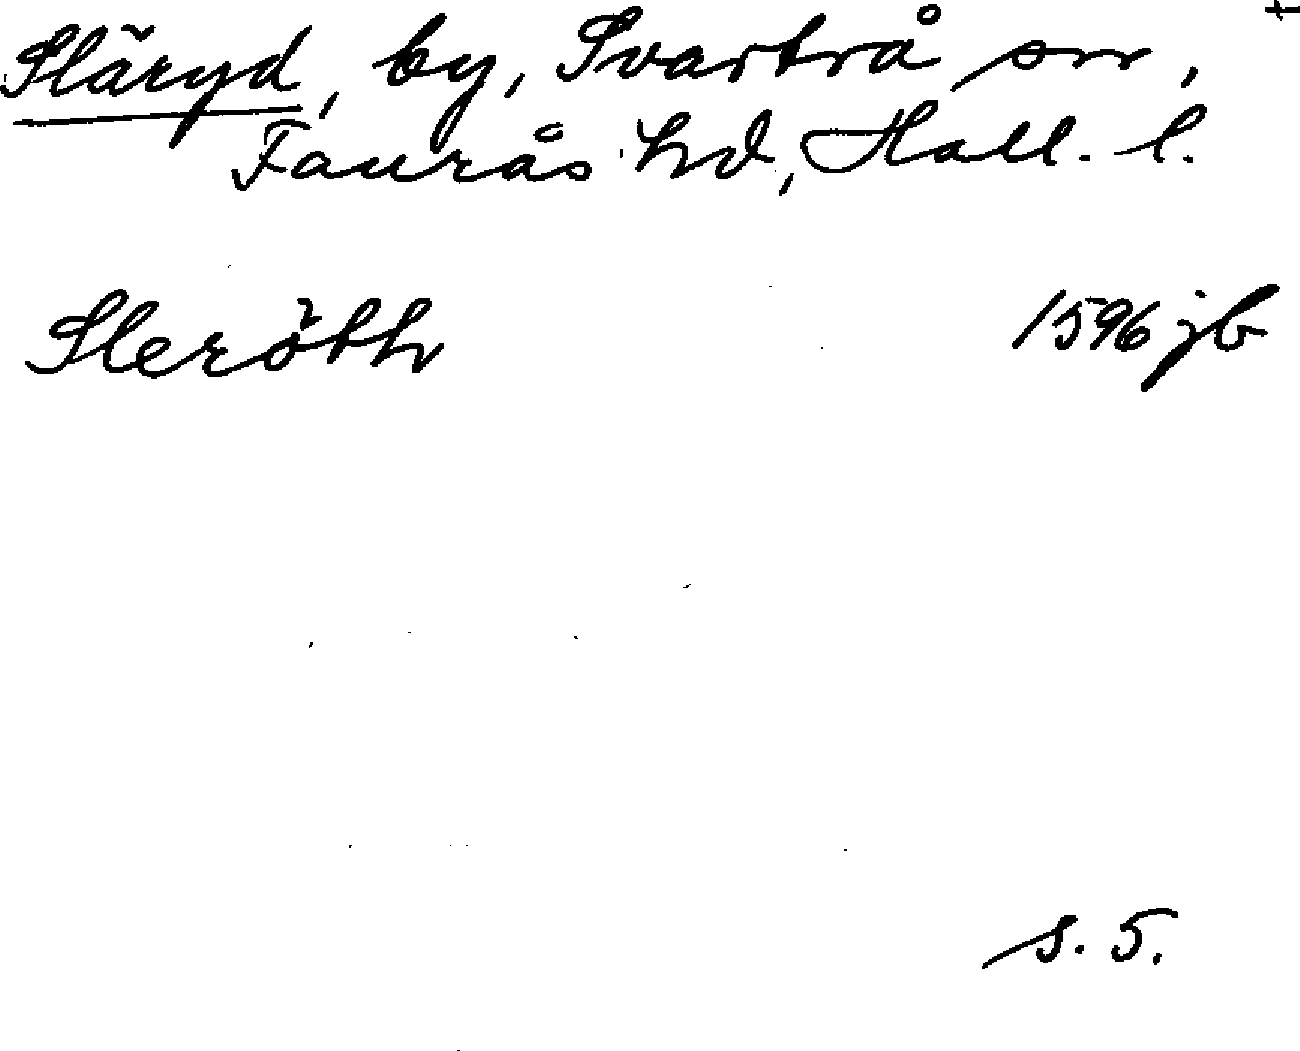 Släryd, by, Svartrå sn, +
Faurås hd, Hall. l.
Sleröth 1596 jb
s. 5.